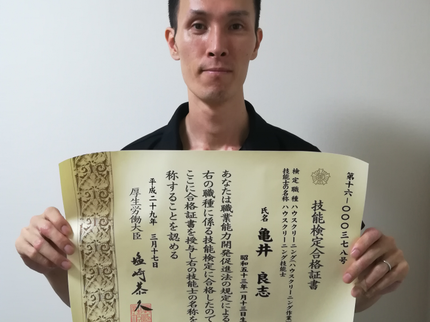 第十六-〇〇〇三七八号
技能検定合格証書
検定職種 ハウスクリーニング(ハウスクリーニング作業)
技能士の名称 ハウスクリーニング技能士
氏名 亀井良志
昭和五十三年一月十三日生
あなたは職業能力開発促進法の規定による
右の職種に係る技能検定に合格したので
ここに合格証書を授与し右の技能士の名称を
称することを認める
平成二十九年三月十七日
厚生労働大臣 塩崎恭久